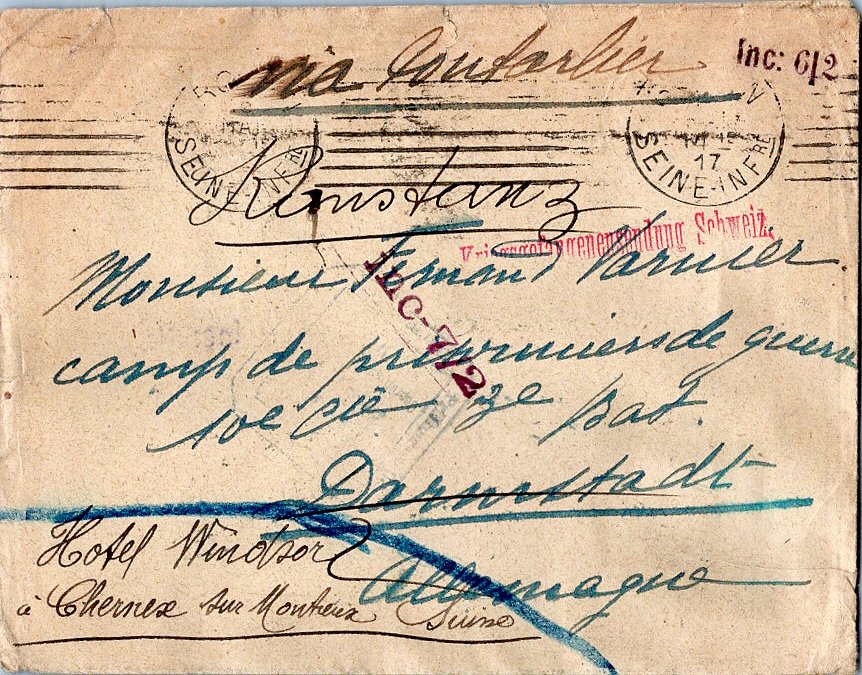 via Pontarlier
Inc: 6/2
RO
SEINE-INFRE
17
SEINE-INFRE
Konstanz
Kriegsgefangenensendung Schweiz.
Monsieur Fernand Varnier
Inc-7/2
camp de prisonniers de guerre
10e cie 3e Bat.
Darmstadt
Allemagne
Hotel Windsor
à Chernex sur Montreux Suisse